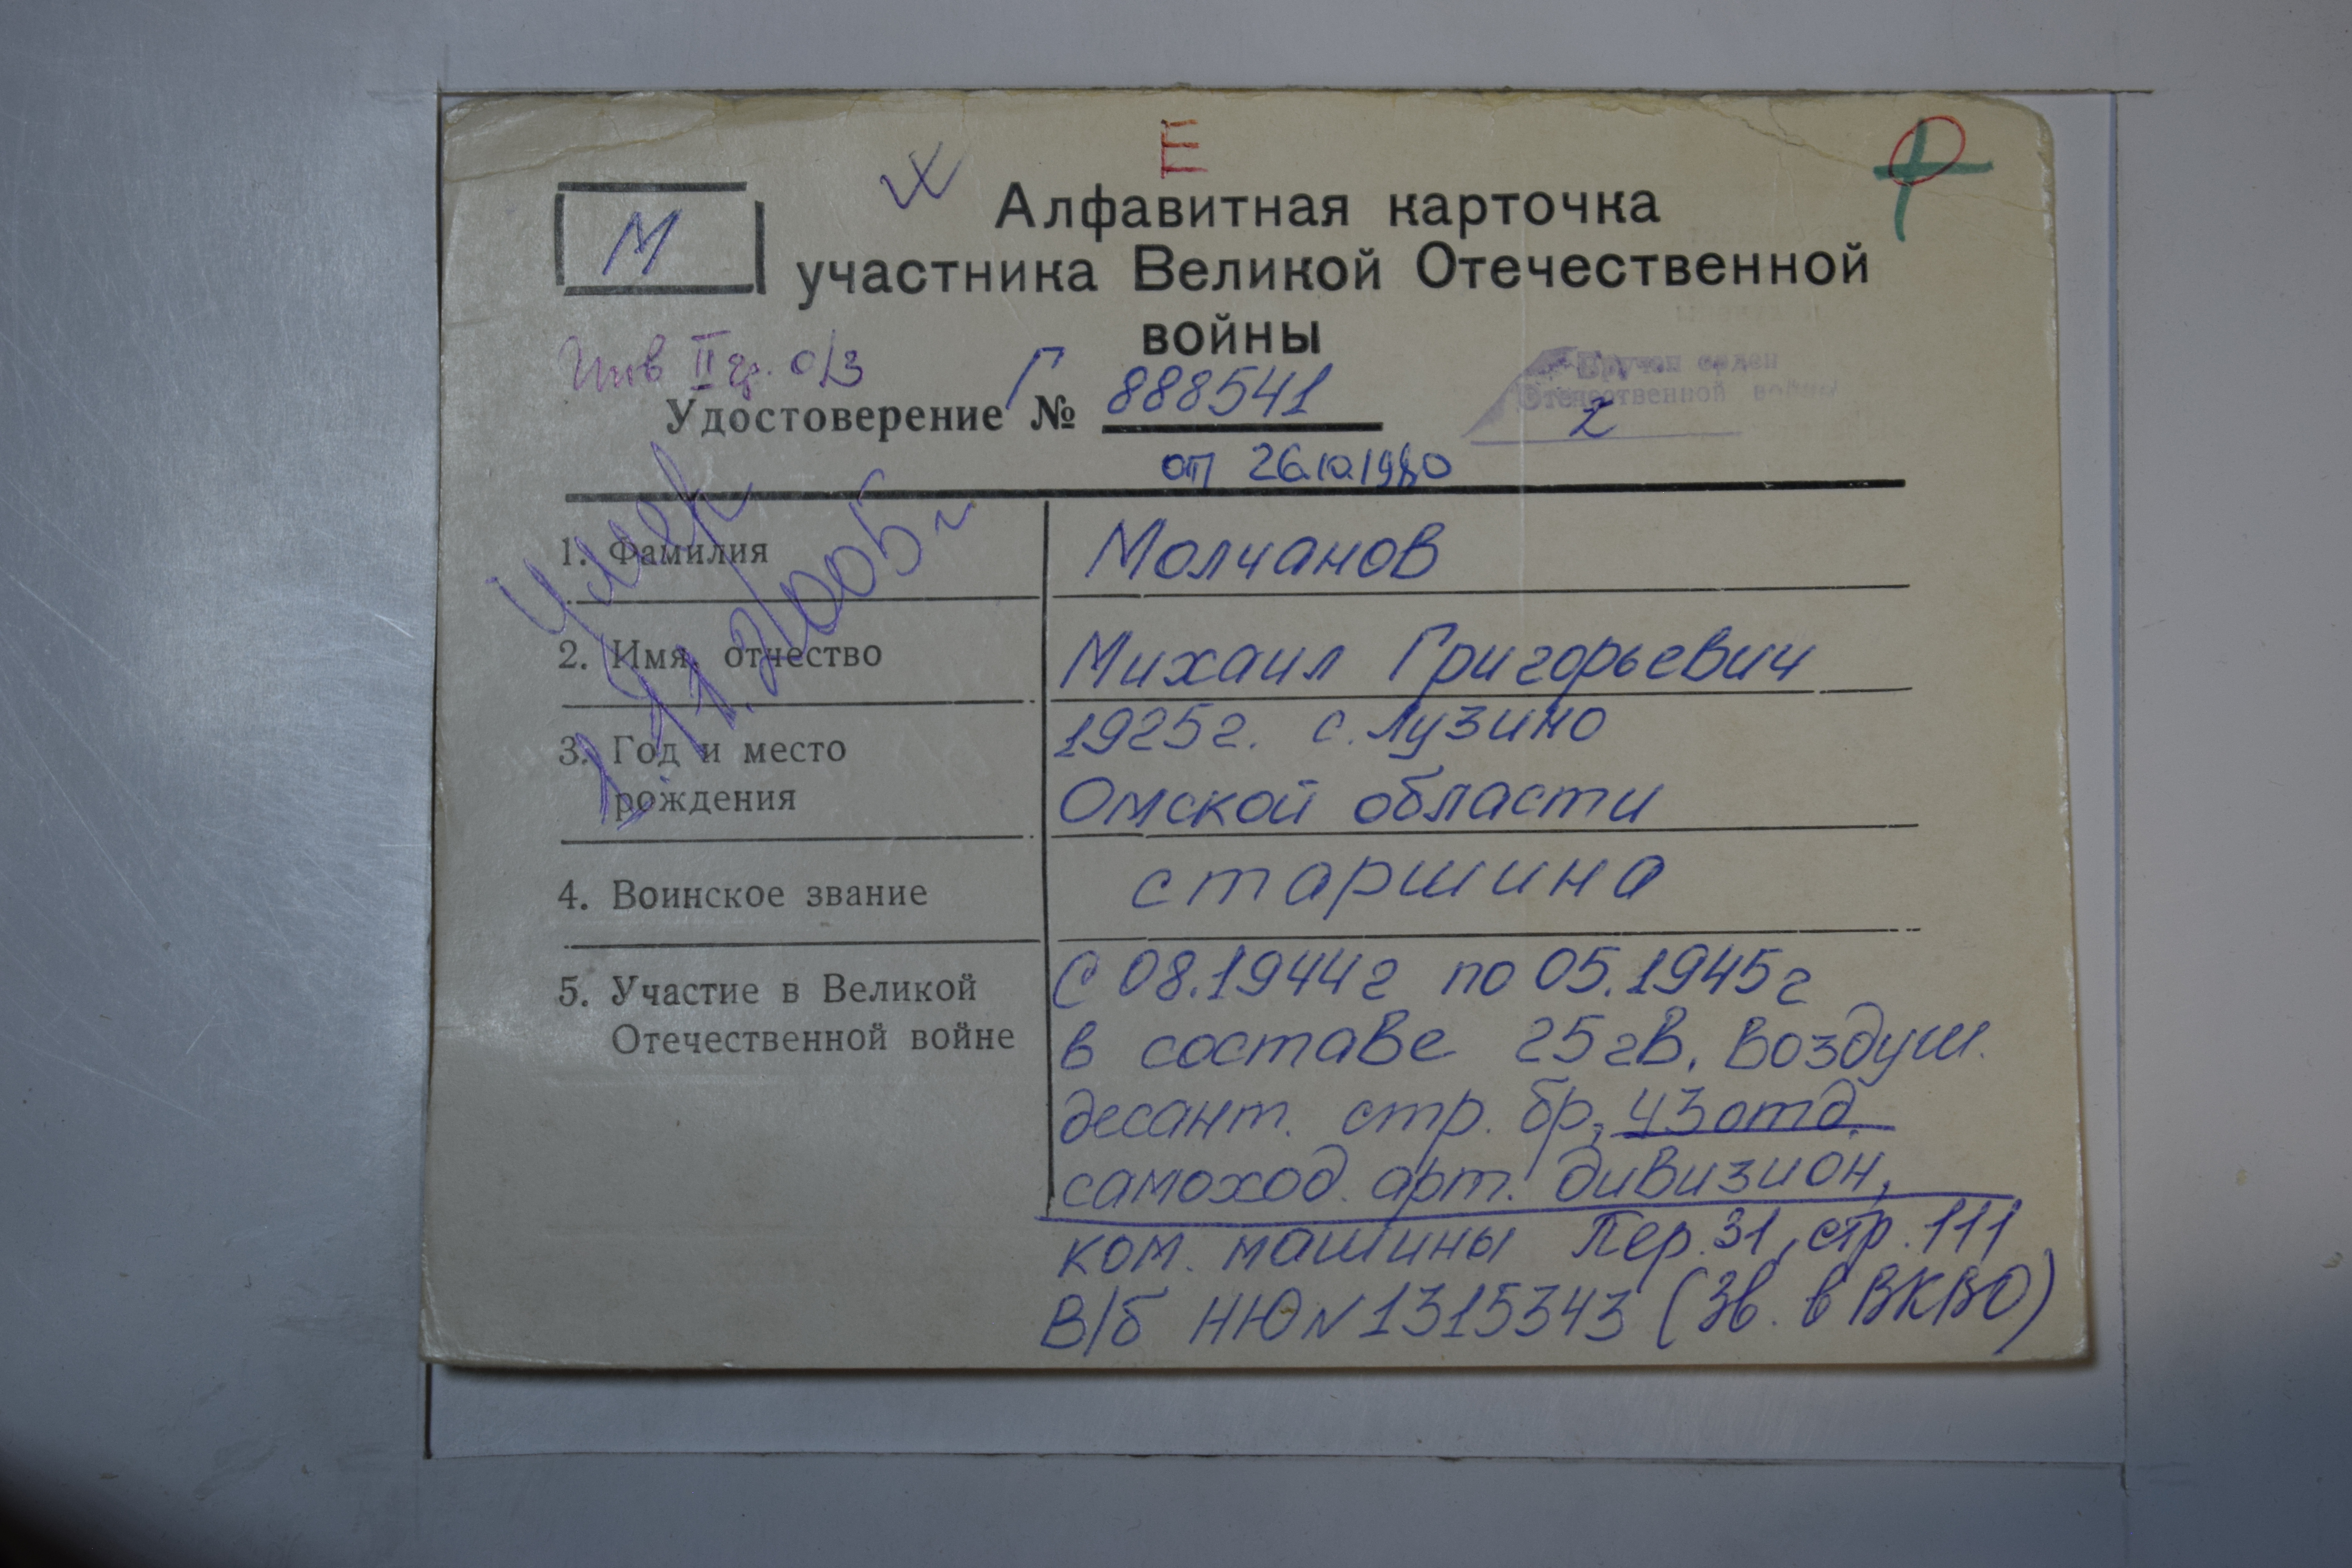 М
Алфавитная карточка
участника Великой Отечественной
войны
Инв II гр. о/з
Вручен орден
Отечественной войны
2
Удостоверение Г № 888541
от 26.10.1980
Умер
1. Фамилия Молчанов
2. Имя, отчество Михаил Григорьевич
3. Год и место 1925г. с. Лузино
рождения Омской области
4. Воинское звание старшина
5. Участие в Великой С 08.1944г по 05.1945г
Отечественной войне в составе 25 гв. воздуш.
десант. стр. бр, 43 отд.
самоход. арт. дивизион,
ком. машины Пер. 31, стр. 111
В/б НЮ N 1315343 (Зв. в ВКВО)